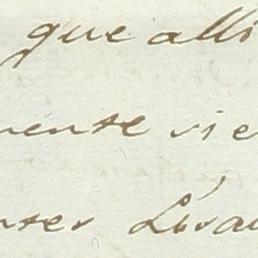 que alli
mente si e
ntes Lisa